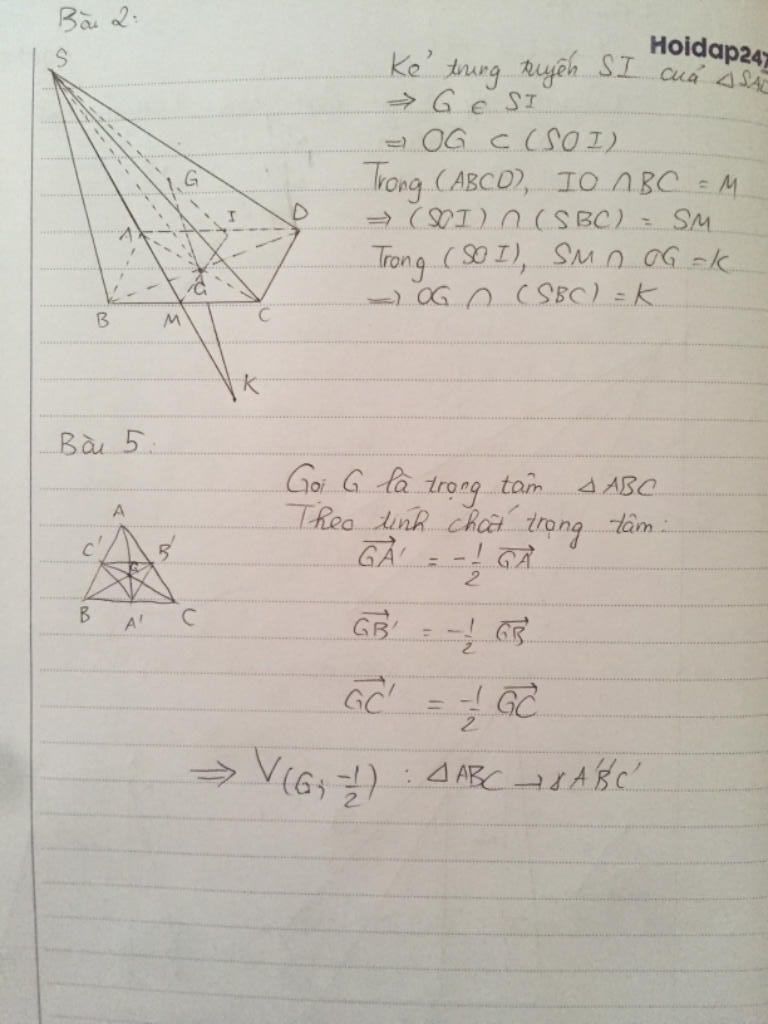 Bài 2:
Hoidap247
Kẻ trung tuyến SI của △SAD
⇒ G ∈ SI
⇒ OG ⊂ (SOI)
Trong (ABCD), IO ∩ BC = M
⇒ (SOI) ∩ (SBC) = SM
Trong (SOI), SM ∩ OG = K
⇒ OG ∩ (SBC) = K
S
G
A I D
B M C
K
Bài 5:
Gọi G là trọng tâm △ABC
Theo tính chất trọng tâm:
A
C' B'
G
B A' C
GA' = -1/2 GA
GB' = -1/2 GB
GC' = -1/2 GC
⇒ V(G; -1/2) : △ABC → △A'B'C'